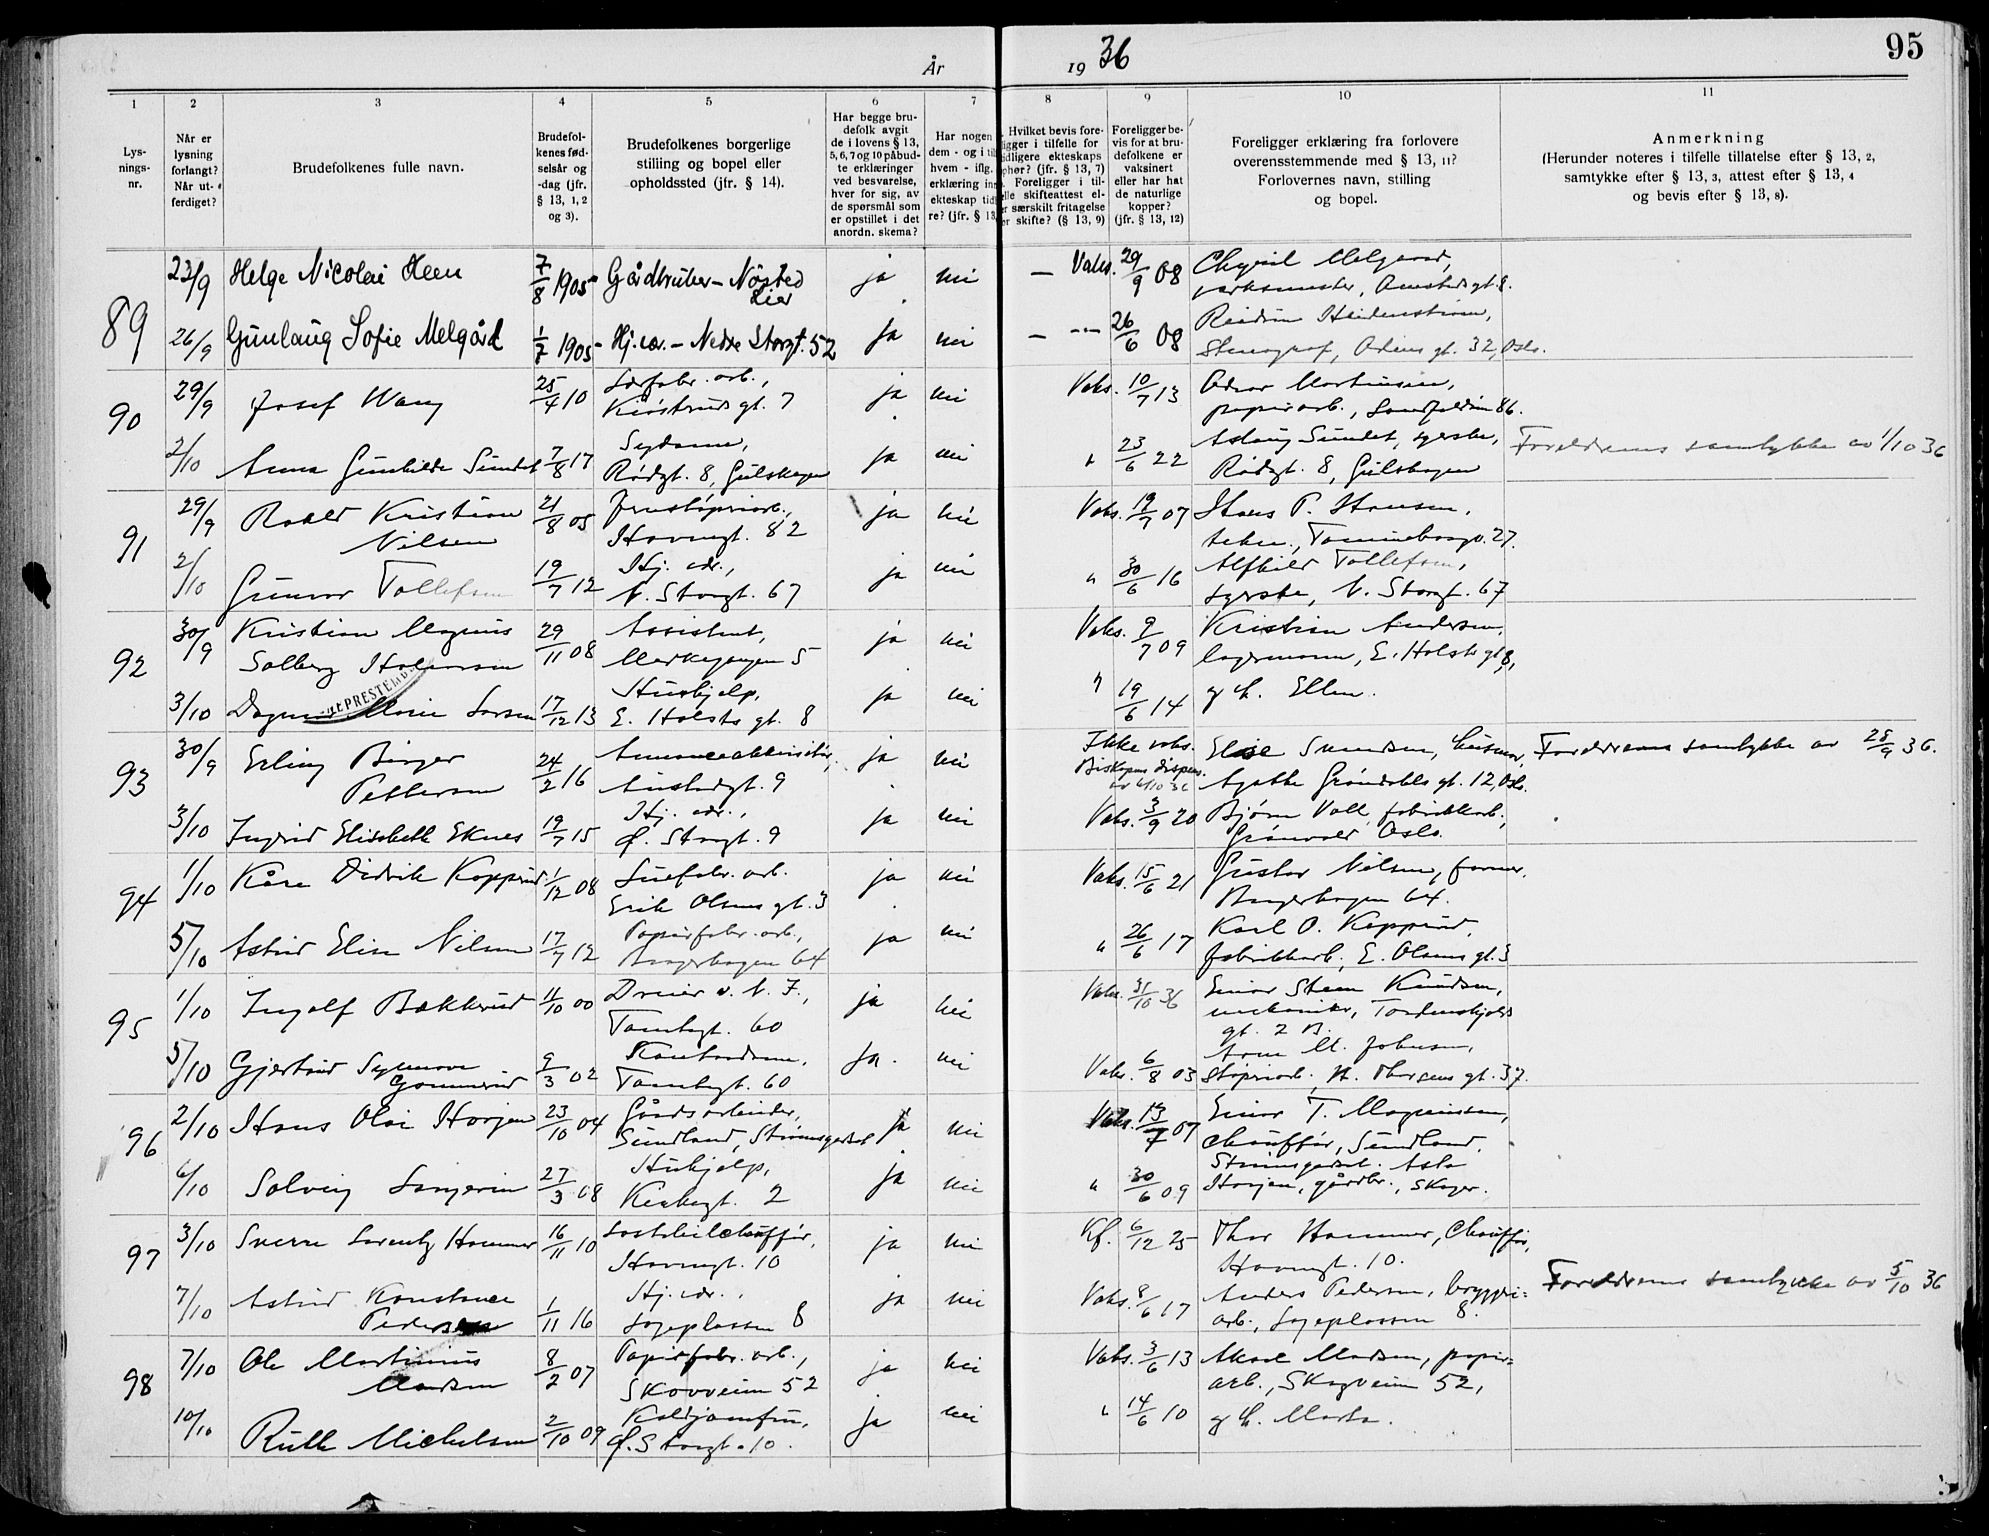 95
År 1936
1 2 3 4 5 6 7 8 9 10 11
Lys-
nings-
nr.
Når er
lysning
forlangt?
Når ut-
ferdiget?
Brudefolkenes fulle navn.
Brudefol-
kenes fød-
selsår og
-dag (jfr.
§ 13, 1, 2
og 3).
Brudefolkenes borgerlige
stilling og bopel eller
opholdssted (jfr. § 14).
Har begge bru-
defolk avgit
de i lovens § 13,
5, 6, 7 og 10 påbud-
te erklæringer
ved besvarelse,
hver for sig, av
de spørsmål som
er opstillet i det
anordn. skema?
Har nogen
dem - og i
hvem - iflg.
erklæring
ekteskap
re? (jfr. § 13
Hvilket bevis fore-
ligger i tilfelle for
tidligere ekteskaps
ophør? (jfr. § 13, 7)
Foreligger i til-
skifteattest el-
særskilt fritagelse
skifte? (§ 13, 9)
Foreligger be-
vis for at bru-
defolkene er
vaksinert
eller har hat
de naturlige
kopper?
(jfr. § 13, 12)
Foreligger erklæring fra forlovere
overensstemmende med § 13, 11?
Forlovernes navn, stilling
og bopel.
Anmerkning
(Herunder noteres i tilfelle tillatelse efter § 13, 2,
samtykke efter § 13, 3, attest efter § 13, 4
og bevis efter § 13, 8).
89 23/9 Helge Nicolai Heen 7/8 1905 Gårdbruker - Nøsted Lier ja nei — Vaks. 29/9 08 Melgaard,
26/9 Gunlaug Sofie Melgård 1/7 1905 Hj.vær. - Nedre Storgt. 52 ja nei — 26/6 08 Reidun Heidenstrøm,
gt. 32, Oslo.
90 29/9 Josef Wang 25/4 10 arb., gt. 7 ja nei Vaks. 10/7 13 Martinsen,
papirarb., 86.
2/10 Anna Gunhilde Sundet 7/8 17 Sydame, Rødgt. 8, Gulskogen ja nei " 23/6 22 Aslaug Sundet, syerske,
Rødgt. 8, Gulskogen Foreldrenes samtykke av 1/10 36
91 29/9 Roald Kristian Nilsen 21/8 05 Jernstøperiarb., Havnegt. 82 ja nei Vaks. 19/7 07 Hans P. Hansen,
27.
2/10 Gunvor Tollefsen 19/7 12 Hj. vær., N. Storgt. 67 ja nei " 30/6 16 Alfhild Tollefsen,
syerske, N. Storgt. 67
92 30/9 Kristian Magnus Solberg Halvorsen 29/11 08 Assistent, 5 ja nei Vaks. 9/7 09 Kristian Andersen,
lagermann, E. Holsts gt. 8,
3/10 Dagmar Marie Larsen 17/12 13 Hushjelp, E. Holsts gt. 8 ja nei " 19/6 14 og h. Ellen.
93 30/9 Erling Birger Pettersen 24/2 16 Annonceakkvisitør, Austadgt. 9 ja nei Ikke vaks. Biskopens dispens. Else Svendsen, husmor,
Agathe Grøndahls gt. 12, Oslo. Foreldrenes samtykke av 28/9 36.
3/10 Ingrid Elisabeth Eknes 19/7 15 Hj. vær., Ø. Storgt. 9 ja nei Vaks. 3/9 20 Bjørn Voll, fabrikkarb.,
Oslo.
94 1/10 Kåre Didrik Kopperud 1/12 08 arb. Erik Olsens gt. 3 ja nei Vaks. 15/6 21 Gustav Nilsen, former,
Bragerhagen 64.
5/10 Astrid Elise Nilsen 17/7 12 Papirfabr. arb., Bragerhagen 64 ja nei " 26/6 17 Karl O. Kopperud,
fabrikkarb., E. Olsens gt. 3
95 1/10 Ingolf Bakkerud 11/10 00 Dreier v. N. J., Tomtegt. 60 ja nei Vaks. 31/10 36 Einar Steen Knudsen,
mekaniker, Tordenskjolds
gt. 2 B.
5/10 Gjertrud Synnøve Gommerud 9/3 02 Kontordame, Tomtegt. 60 ja. nei Vaks. 6/8 03 Arne M. Johnsen,
støperiarb. H. Thorsens gt. 37.
96 2/10 Hans Olai Horjen 23/10 04 Gårdsarbeider, Sundland, Strømsgodset ja nei Vaks. 13/7 07 Einar T. Magnussen,
chauffør, Sundland,
6/10 Solveig 27/3 08 Hushjelp, Kirkegt. 2 ja nei " 30/6 09 Strømsgodset. Asle
Horjen, gårdbr., Skoger.
97 3/10 Sverre Lorentz Hammer 16/11 10 Lastebilchauffør, Havnegt. 10 ja nei Kf. 6/12 25 Thor Hammer, Chauffør,
Havnegt. 10.
7/10 Astrid Konstance Pedersen 1/11 16 Hj. vær., Løxeplassen 8 ja nei Vaks. 8/6 17 Anders Pedersen, bryggeri=
arb., Løxeplassen 8. Foreldrenes samtykke av 5/10 36
98 7/10 Ole Martinius Madsen 8/2 07 Papirfabr. arb., Skovveien 52 ja nei Vaks. 3/6 13 Aksel Madsen, papir=
arb., Skogveien 52,
10/10 Ruth Michelsen 2/10 09 Koldjomfru, Ø. Storgt. 10. ja nei " 14/6 10 og h. Marta.